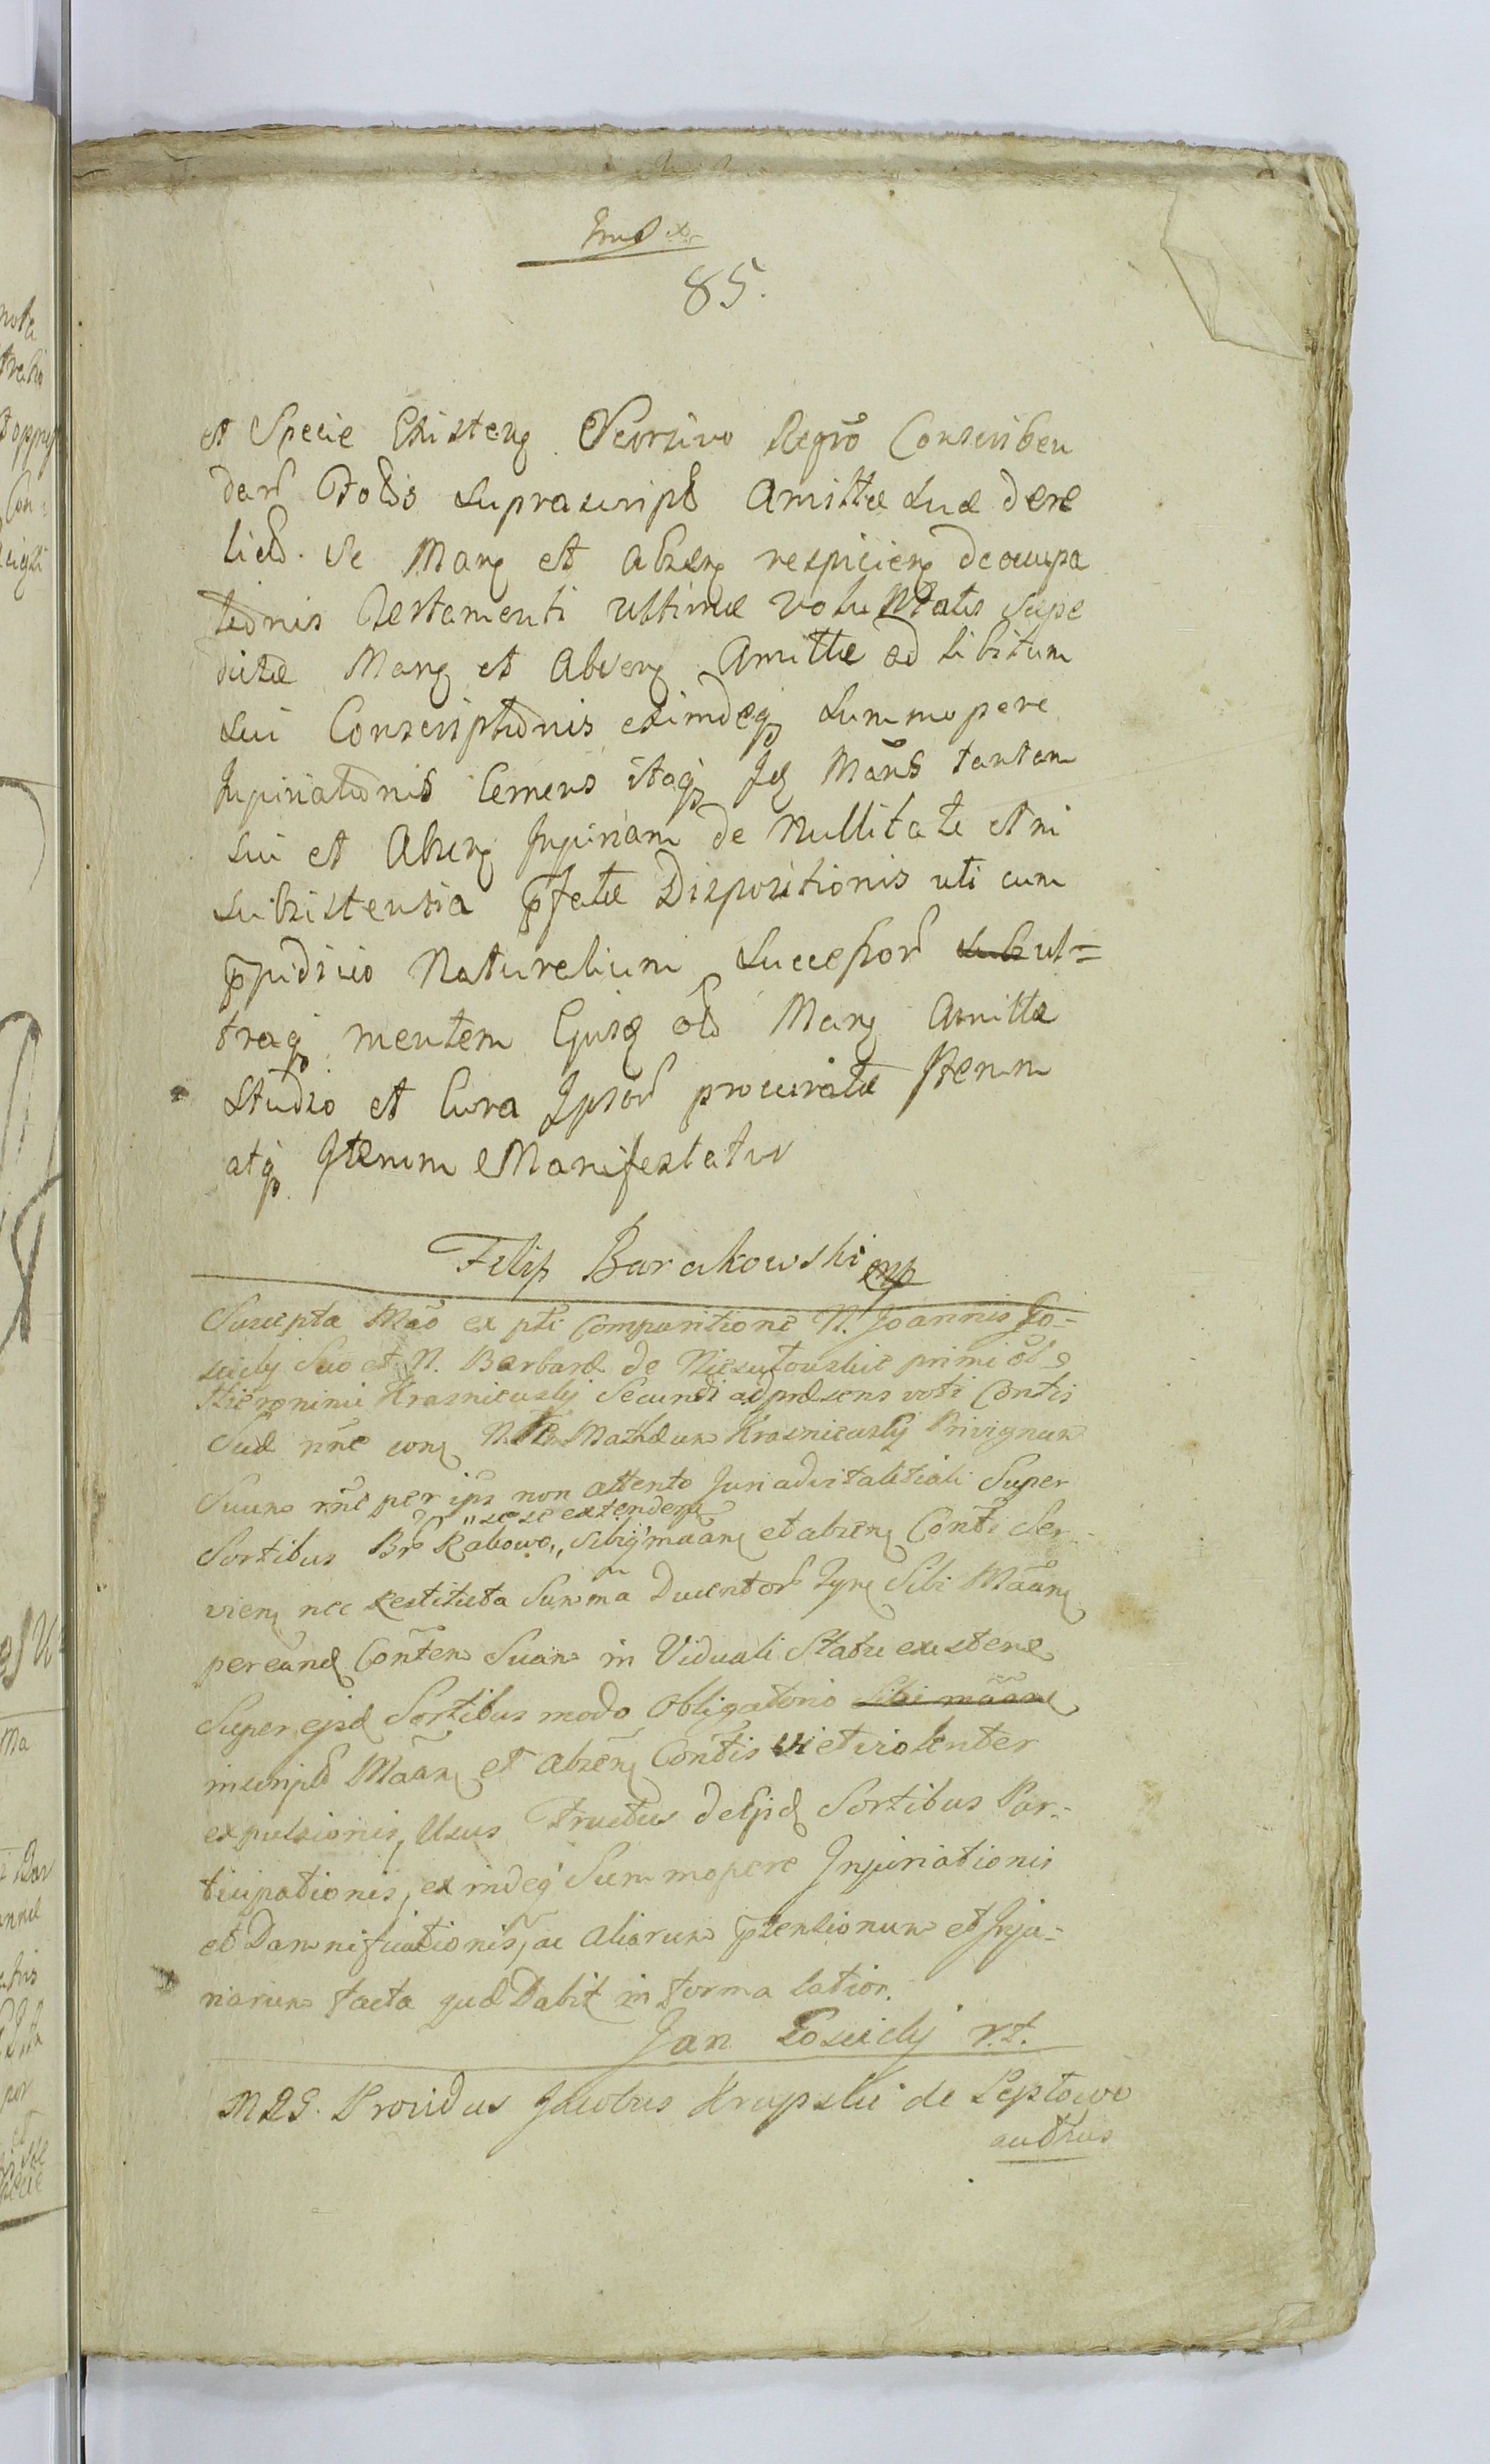 85.
et Specie Existen Seorsivo Regrō Conscriben
dar Folis suprascript Amittæ suæ dere
lict. se Man et absen respicien deoccupa
tionis Testamenti ultimæ voluntatis supe
dictæ Man et Absen Amittæ ad libitum
sui Conscriptionis exindeq summopere
Injuriationis Cernens itaq Id Mans tantam
sui et Absen Injuriam de Nullitate et ni
subsistentia pfatæ Dispositionis uti cum
ppudicio Naturalium Successor sub ul=
traq mentem Ejusd ad Man Amittæ
studio et Cura Ipsor procuratæ Iterum
atq Iterum Manifestatur
Filip Barakowski mp
Suscepta Mão ex pte Comparitione N. Joannis Ło-
sicky Suo et N. Barbaræ de Niesułowskie primi
Hieronimi Krasnicusky Secundi ad præsens voti Contis
Suæ nñe con N. Mathæum Krasnicusky Privignum
Suum rñe per ips non attento Juri advitalitiali Super
„se se extenden
Sortibus Br Rabowo „ sibiq maan et absen Conti Ser-
vien nec restituta Summa Ducentor Tyn Sibi Mãan
per eand Conten Suam in Viduali Statu existen
Super ejsd Sortibus modo Obligatorio sibi mãan
inscript Mãan et Absen Contis vi et violenter
expulsionis, Usus Fructus de Ejsd Sortibus Par-
ticipationis, exindeq Summopere Injuriationis
et Damnificationis, ac aliarum ptensionum et Inju-
riarum facta quæ Dabit in forma latior.
Jan Łosicky
Providus Jacobus Krupski de Leptowo
authus